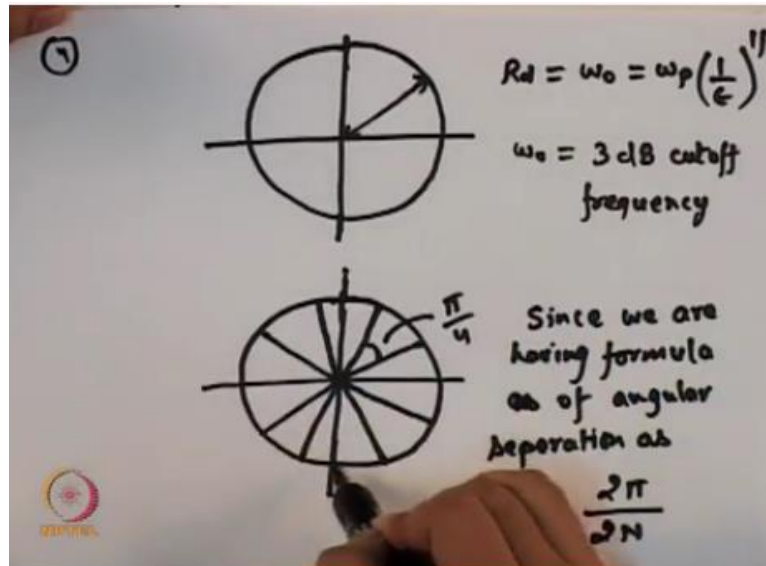 9
Rd = ω₀ = ωp(1/ε)^1/
ω₀ = 3 dB cutoff
frequency
π/4
Since we are
having formula
as of angular
separation as
2π/2N
NPTEL